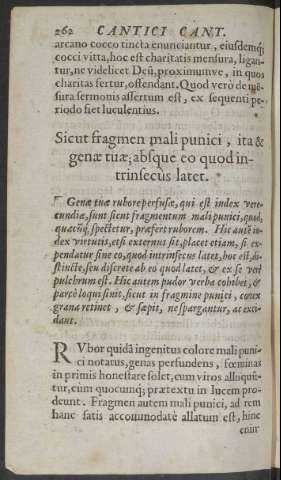 262 CANTICI CANT.
arcano cocco tincta enunciantur, eiusdemq́;
cocci vitta, hoc est charitatis mensura, ligan-
tur, ne videlicet Deũ, proximumve, in quos
charitas fertur, offendant. Quod verò de mẽ-
sura sermonis assertum est, ex sequenti pe-
riodo fiet luculentius.
Sicut fragmen mali punici, ita &
genæ tuæ; absque eo quod in-
trinsecus latet.
Genæ tuæ rubore perfusæ, qui est index vere-
cundiæ, sunt sicut fragmentum mali punici, quod,
quacũq́, spectetur, præfert ruborem. Hic autẽ in-
dex virtutis, etsi externus sit, placet etiam, si ex-
pendatur sine eo, quod intrinsecus latet, hoc est, di-
stincte, seu discrete ab eo quod latet, & ex se verè
pulchrum est. Hic autem pudor verba cohibet, &
parcè loqui sinit, sicut in fragmine punici, cortex
grana retinet, & sæpit, ne spargantur, ac exci-
dant.
RVbor quidã ingenitus colore mali puni-
ci notatus, genas perfundens, fœminas
in primis honestare solet, cum viros alloquũ-
tur, cùm quocumq́; prætextu in lucem pro-
deunt. Fragmen autem mali punici, ad rem
hanc satis accommodatè allatum est, hinc
enim